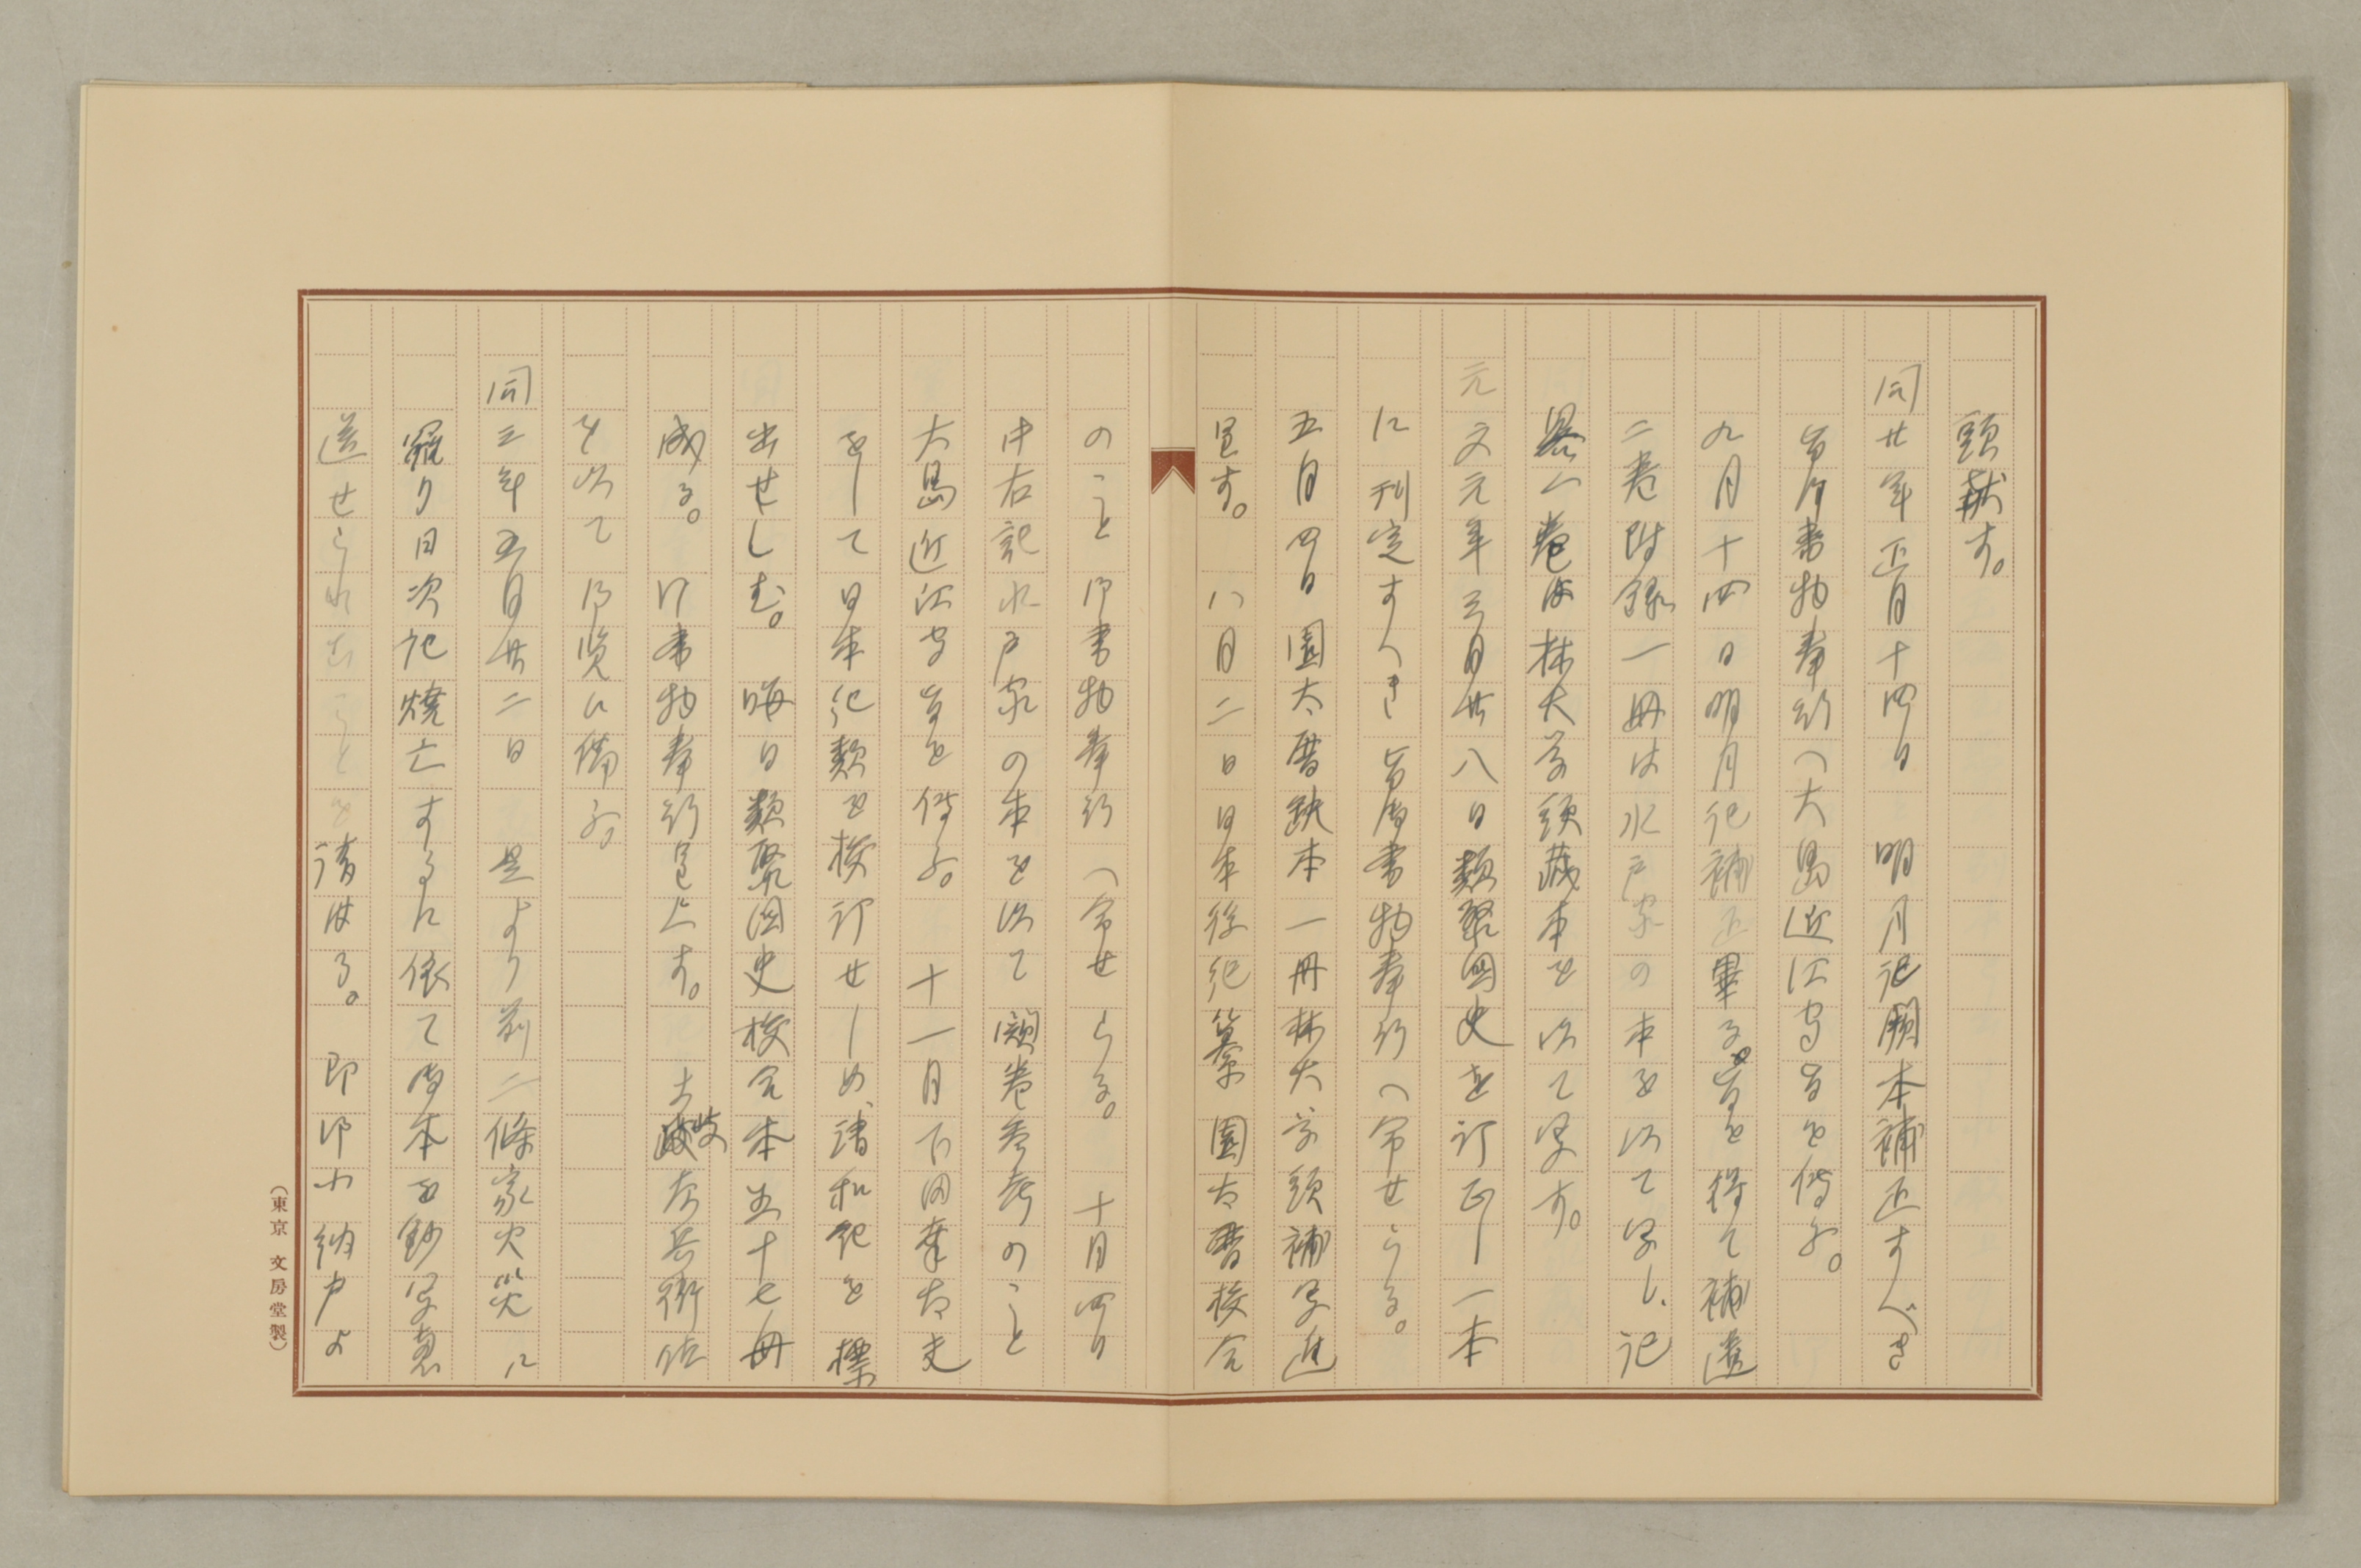 頭献す。
同廿年正月十四日　明月記闕本補正すべき
旨御書物奉行へ大島近江守旨を傳ふ。
九月十四日明月記補正畢る旨を得て補遺
二巻附録一冊は水戸家の本を以て写し、記
畧一巻は林大学頭蔵本を以て写す。
元文元年三月廿八日類聚國史を訂正し一本
に刊定すへき旨御書物奉行へ命せらる。
五月四日園太暦缺本一冊林大学頭補写進
呈す。　八月二日日本後紀纂園太暦校合
のこと御書物奉行へ命せらる。　十月四日
中右記水戸家の本を以て闕巻参考のこと
大島近江守旨を傳ふ。　十一月下田幸大夫
をして日本紀類を校訂せしめ、諸和紀を標
出せしむ。　晦日類聚國史校合本五十七冊
成る。　御書物奉行呈上す。　土岐左兵衛佐
を以て御覧に備ふ。
同三年五月廿二日　是より前二條家火災に
羅り日次記焼亡するに依て御本を鈔写恵
送せられむことを請はる。　即御小納戸よ
（東京　文房堂製）